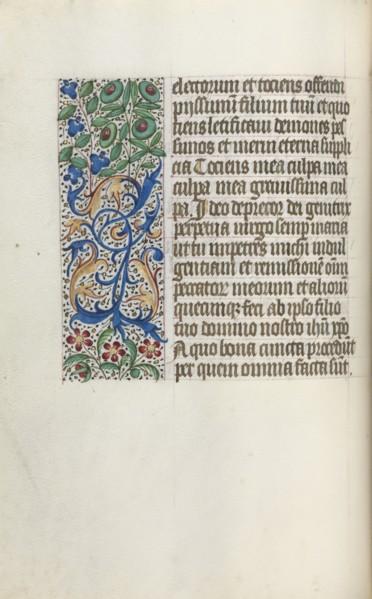 electorum et tociens offendi
piissimū filium tuū et quo
tiens letificaui demones pes
simos et merui eterna suppli
cia Tociens mea culpa mea
culpa mea grauissima cul
pa. Ideo deprecor dei genitrix
perpetua uirgo semp maria
ut tu impetres michi indul
gentiam et remissionē oīm
peccatoꝝ meorum et alioꝝ
quecūqꝫ feci ab ipso filio
tuo domino nostro ihū xp̄o
A quo bona cuncta procedūt
per quem omnia facta sūt.